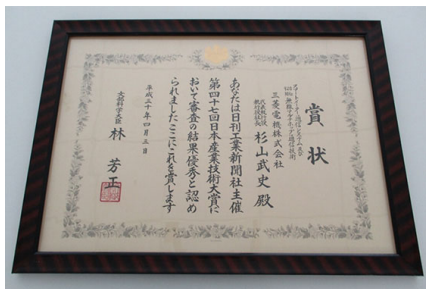 賞状
三菱電機株式会社
代表執行役
執行役社長
杉山武史 殿
あなたは日刊工業新聞社主催
第四十七回日本産業技術大賞に
おいて審査の結果優秀と認め
られましたここにこれを賞します
平成三十年四月三日
文部科学大臣 林 芳正